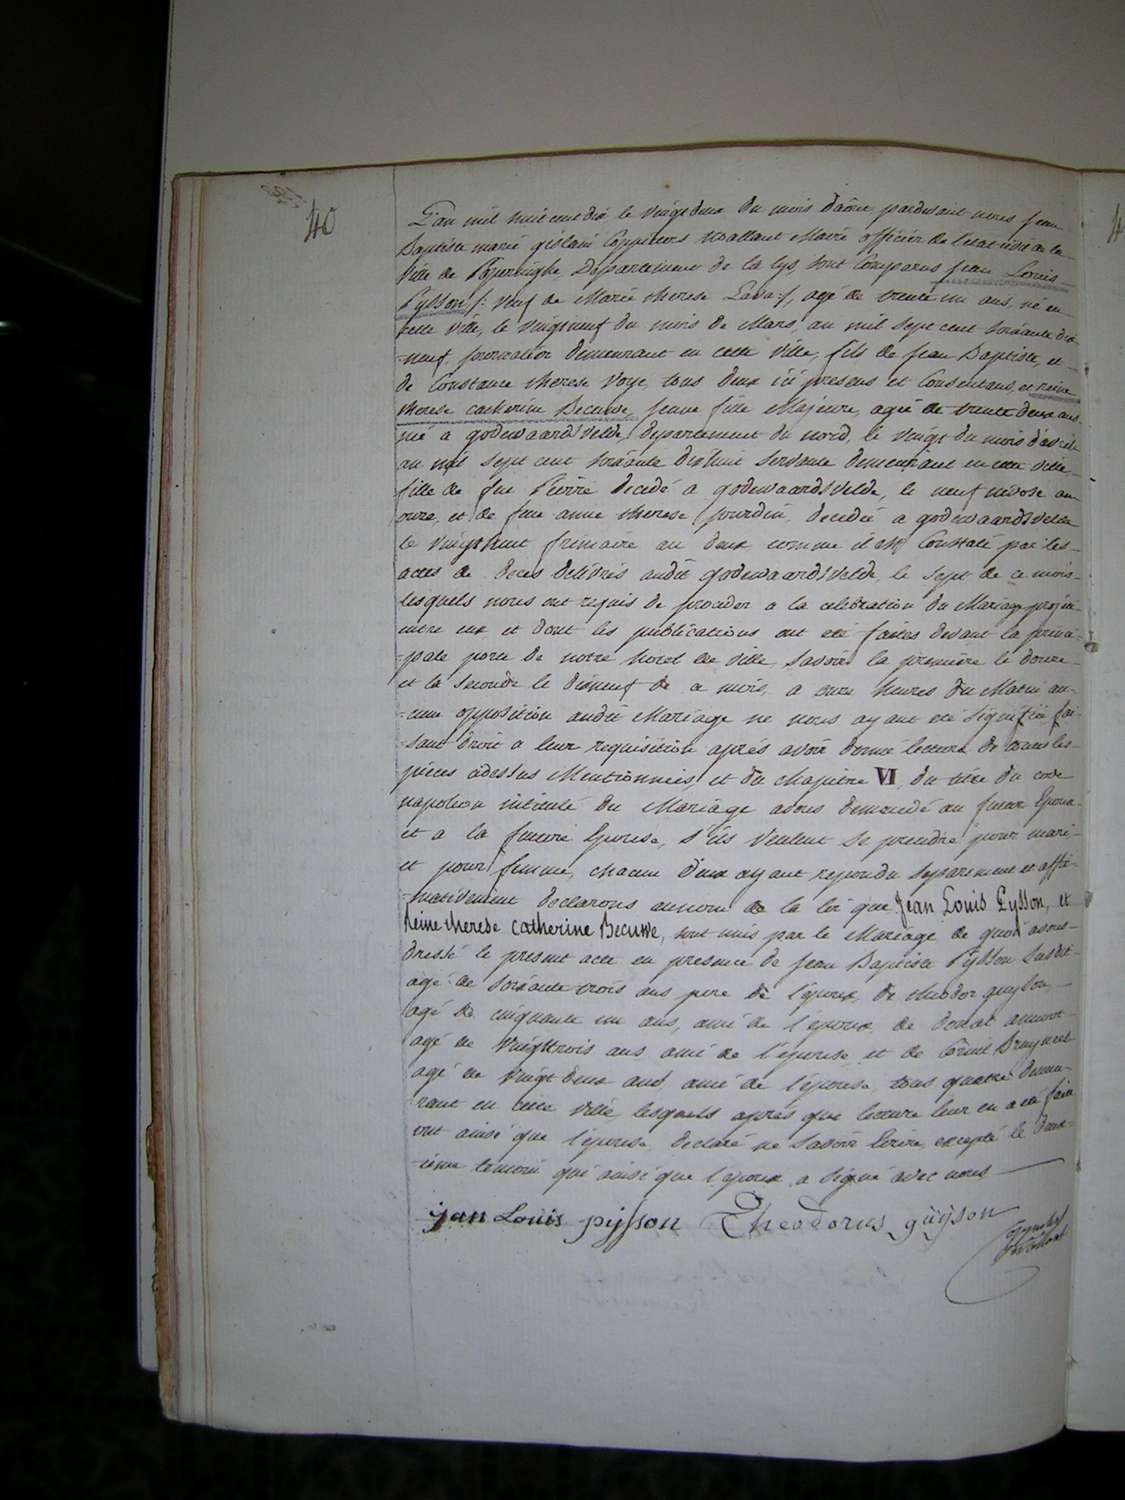 40
L'an mil huit cent dix le vingt deux du mois d'aôut pardevant nous jean
Baptiste marie gislain Coppieters Wallant Maire officier de l'etat civil de la
Ville de Poperinghe, Departement de la Lys, sont Comparus jean Louis
Pysson /: veuf de Marie therese Lava :/, agé de trente un ans, né en
cette ville, le vingt neuf du mois de Mars, au mil sept cent soixante dix
=neuf, journalier demeurant en cette ville, fils de jean Baptiste, et
de Constance therese Voye, tous deux ici presens et Consentans, et reine
therese catherine Becuwe, jeune fille Majeure, agée de trente deux ans
née a godewaardsvelde, departement du nord, le vingt du mois d'avril
au mil sept cent soixante dixhuit servante demeurant en cette ville
fille de feu Pierre decedé a godewaardsvelde, le neuf nivose an
onze, et de feue anne therese jourdin, decedée a godewaardsvelde
le vingt huit frimaire an deux comme il est Constaté par les
actes de deces delivrés audit godewaardsvelde, le sept de ce mois
lesquels nous ont requis de proceder a la celebration du Mariage projetté
entre eux et dont les publications ont été faites devant la princi=
=pale porte de notre hotel de ville, savoir la première le douze
et la seconde le dixneuf de ce mois, a onze heures du Matin au=
=cune opposition audit Mariage ne nous ayant été signifiée, fai=
=sant droit a leur requisition après avoir donné lecture de toutes les
pièces cidessus Mentionnées, et du chapitre VI, du titre du code
napoleon intitulé du Mariage avons demandé au futur Epoux
et a la future Epouse, s'ils veulent se prendre pour mari
et pour femme, chacun d'eux ayant repondu separement et affir=
=mativement declarons au nom de la loi que Jean Louis Pysson, et
Reine therese catherine Becuwe, sont unis par le Mariage de quoi avons
dressé le present acte en presence de jean Baptiste Pysson susdit
agé de soixante trois ans pere de l'époux, de theodor guyson
agé de cinquante un ans, ami de l'époux, de donat
agé de vingt trois ans ami de l'épouse et de
agé de vingt deux ans, ami de l'épouse, tous quatre demeu=
=rant en cette ville, lesquels après que lecture leur en a été faite
ont ainsi que l'épouse declaré ne savoir Ecrire, excepté le deux=
=ieme temoin qui ainsi que l'époux, a signé avec nous
jan Louis pijsson Theodorus guÿson